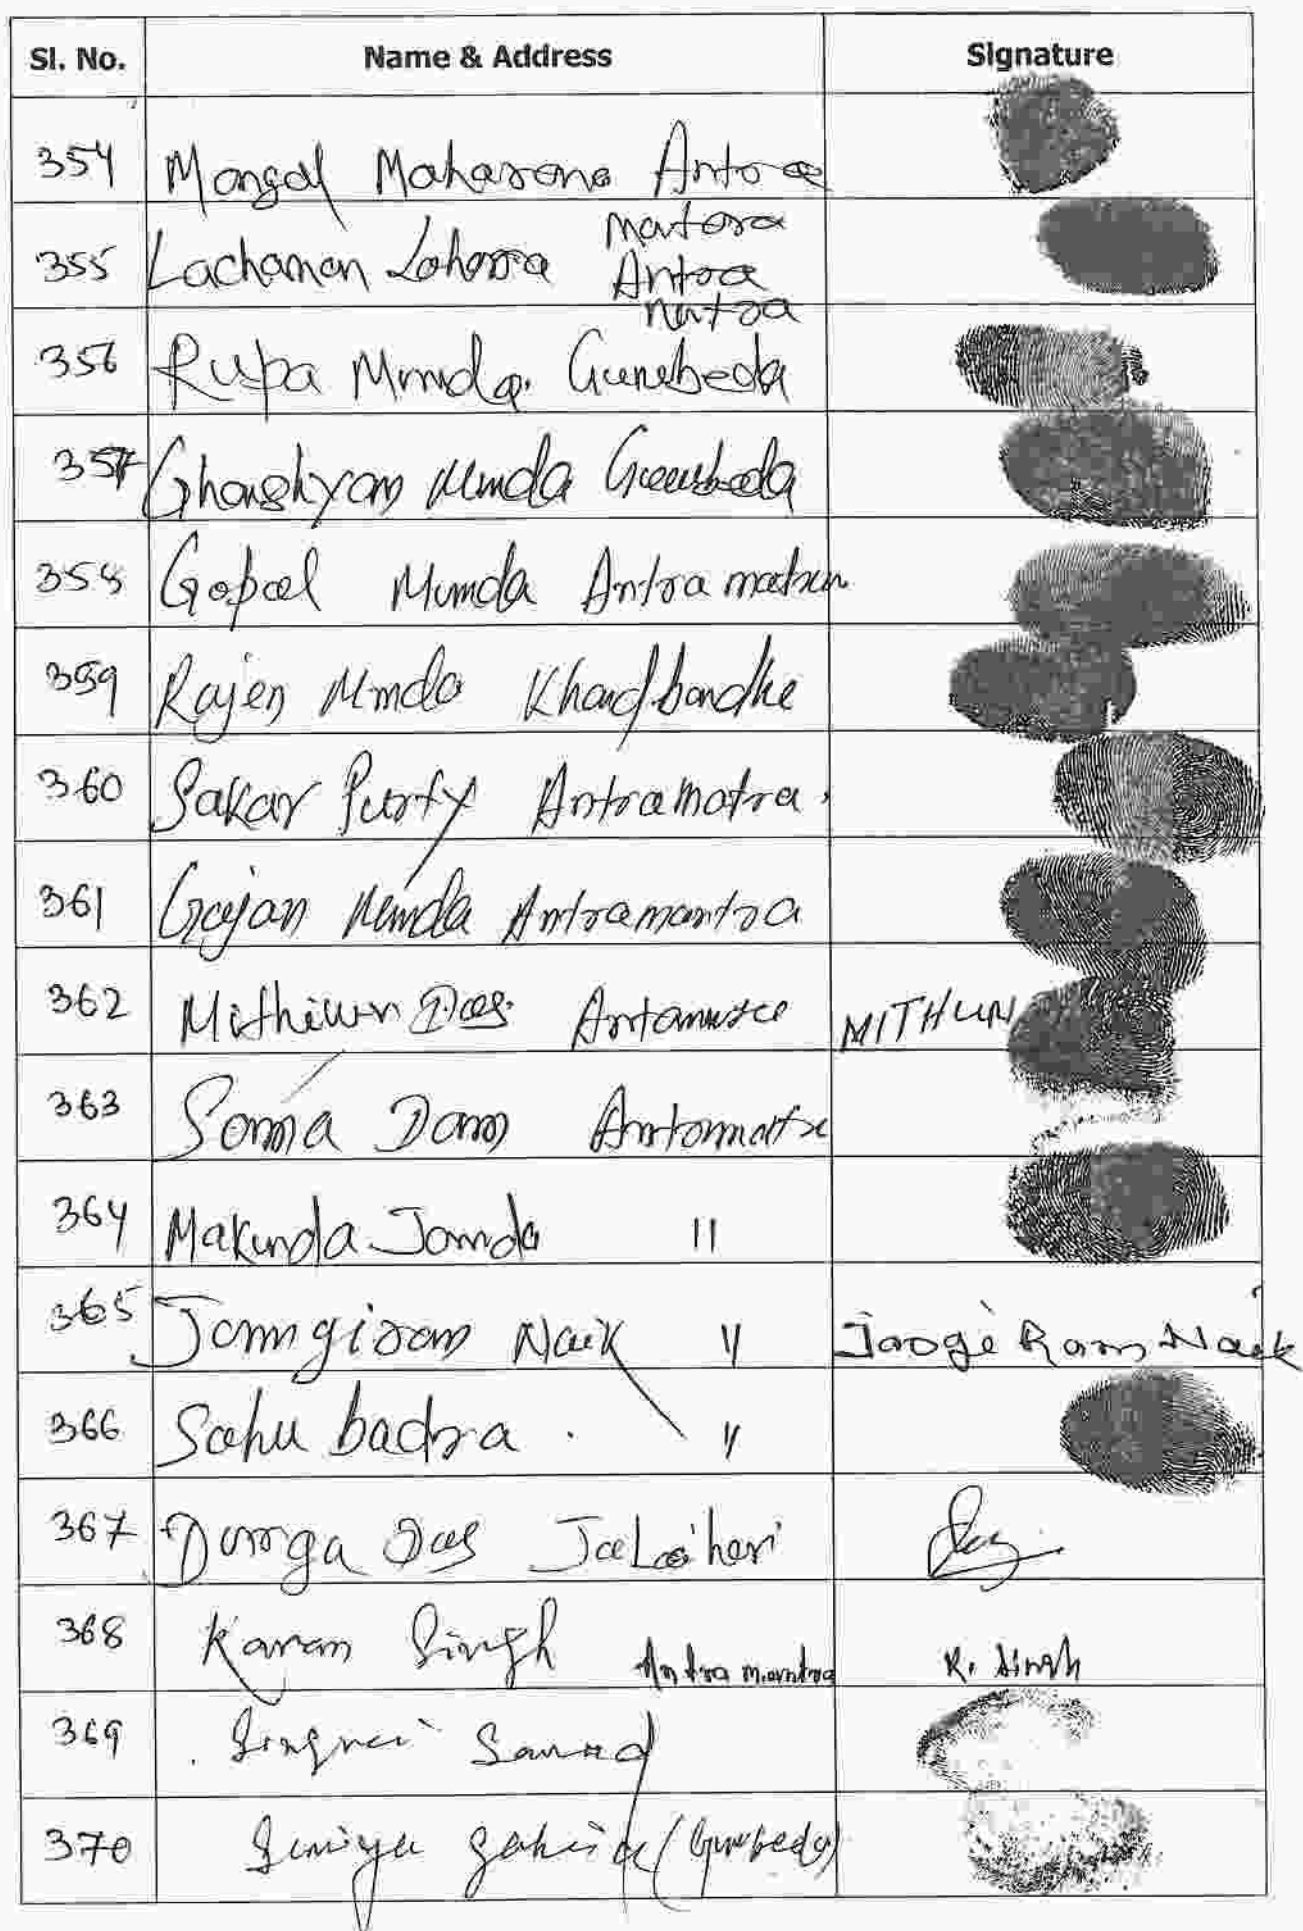 Sl. No. Name & Address Signature
354 Mangal Maharana Antra
matora
355 Lachaman Lohora Antra
matra
356 Rupa Munda. Gunebeda
357 Ghanshyam Munda
358 Gopal Munda Antra matra
359 Rajen Munda Khandbandha
360 Sakar Purty Antramatra
361 Gajan Munda Antramantra
362 Mithiun Das MITHUN
363 Soma Dam
364 Makunda Jamda 11
365 Jamgiram Naik 11 Jaogi Ram Naik
366 Sahu badra 11
367 Durga Das
368 Karan Singh Antra mantra K. Singh
369
370